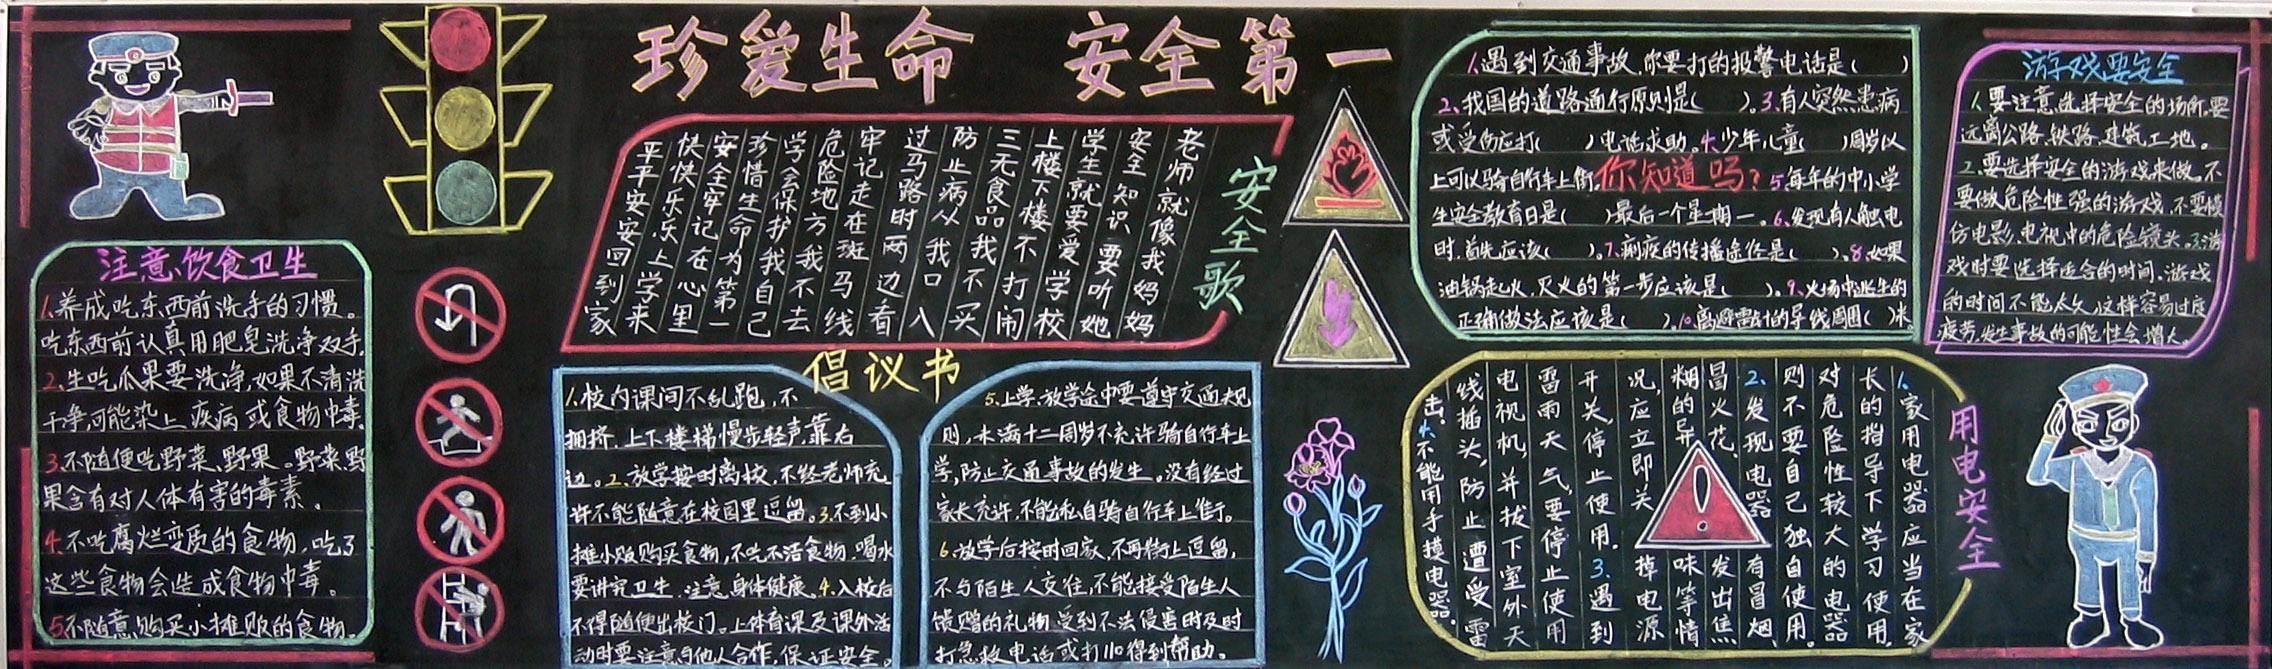 珍爱生命 安全第一
注意饮食卫生
1.养成吃东西前洗手的习惯。
吃东西前认真用肥皂洗净双手。
2.生吃瓜果要洗净,如果不清洗
干净,可能染上疾病或食物中毒。
3.不随便吃野菜、野果。野菜、野
果含有对人体有害的毒素。
4.不吃腐烂变质的食物,吃了
这些食物会造成食物中毒。
5.不随意购买小摊贩的食物。
安全歌
老师就像我妈妈
安全知识要听她
学生就要爱学校
上楼下楼不打闹
三无食品我不买
防止病从我口入
过马路时两边看
牢记走在斑马线
危险地方我不去
学会保护我自己
珍惜生命为第一
安全牢记在心里
快快乐乐上学来
平平安安回到家
倡议书
1.校内课间不乱跑,不
拥挤,上下楼梯慢步轻声靠右
边。2.放学按时离校,不经老师允
许不能随意在校园里逗留。3.不到小
摊小贩购买食物,不吃不洁食物,喝水
要讲究卫生,注意身体健康。4.入校后
不得随便出校门。上体育课及课外活
动时要注意与他人合作,保证安全。
5.上学、放学途中要遵守交通大规
则,未满十二周岁不允许骑自行车上
学,防止交通事故的发生。没有经过
家长允许,不能私自骑自行车上街。
6.放学后按时回家,不再街上逗留,
不与陌生人交往,不能接受陌生人
馈赠的礼物,受到不法侵害时及时
打急救电话或打110得到帮助。
1.遇到交通事故,你要打的报警电话是( )
2.我国的道路通行原则是( )。3.有人突然患病
或受伤应打( )电话求助。4.少年儿童( )周岁以
上可以骑自行车上街。你知道吗?5.每年的中小学
生安全教育日是( )最后一个星期一。6.发现有人触电
时,首先应该( )。7.痢疾的传播途径是( )。8.如果
油锅起火,灭火的第一步应该是( )。9.火场中逃生的
正确做法应该是( )。10.离避雷针的导线周围( )米
游戏要安全
1.要注意选择安全的场所。要
远离公路、铁路、建筑工地。
2.要选择安全的游戏来做。不
要做危险性强的游戏,不要模
仿电影、电视中的危险镜头。3.游
戏时要选择适合的时间。游戏
的时间不能太久,这样容易过度
疲劳,发生事故的可能性会增大。
用电安全
1.家用电器应当在家
长的指导下学习使用,
对危险性较大的电器
则不要自己独自使用。
2.发现电器有冒烟、
冒火花、发出焦
糊的异味等情
况,应立即关掉电源
开关,停止使用。3.遇到
雷雨天气,要停止使用
电视机,并拔下室外天
线插头,防止遭受雷
击。4.不能用手摸电器。